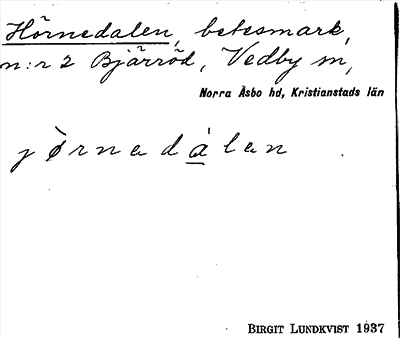 Hörnedalen, betesmark,
n:r 2 Bjärröd, Vedby sn,
Norra Åsbo hd, Kristianstads län
jø̀rnedálen .
BIRGIT LUNDKVIST 1937